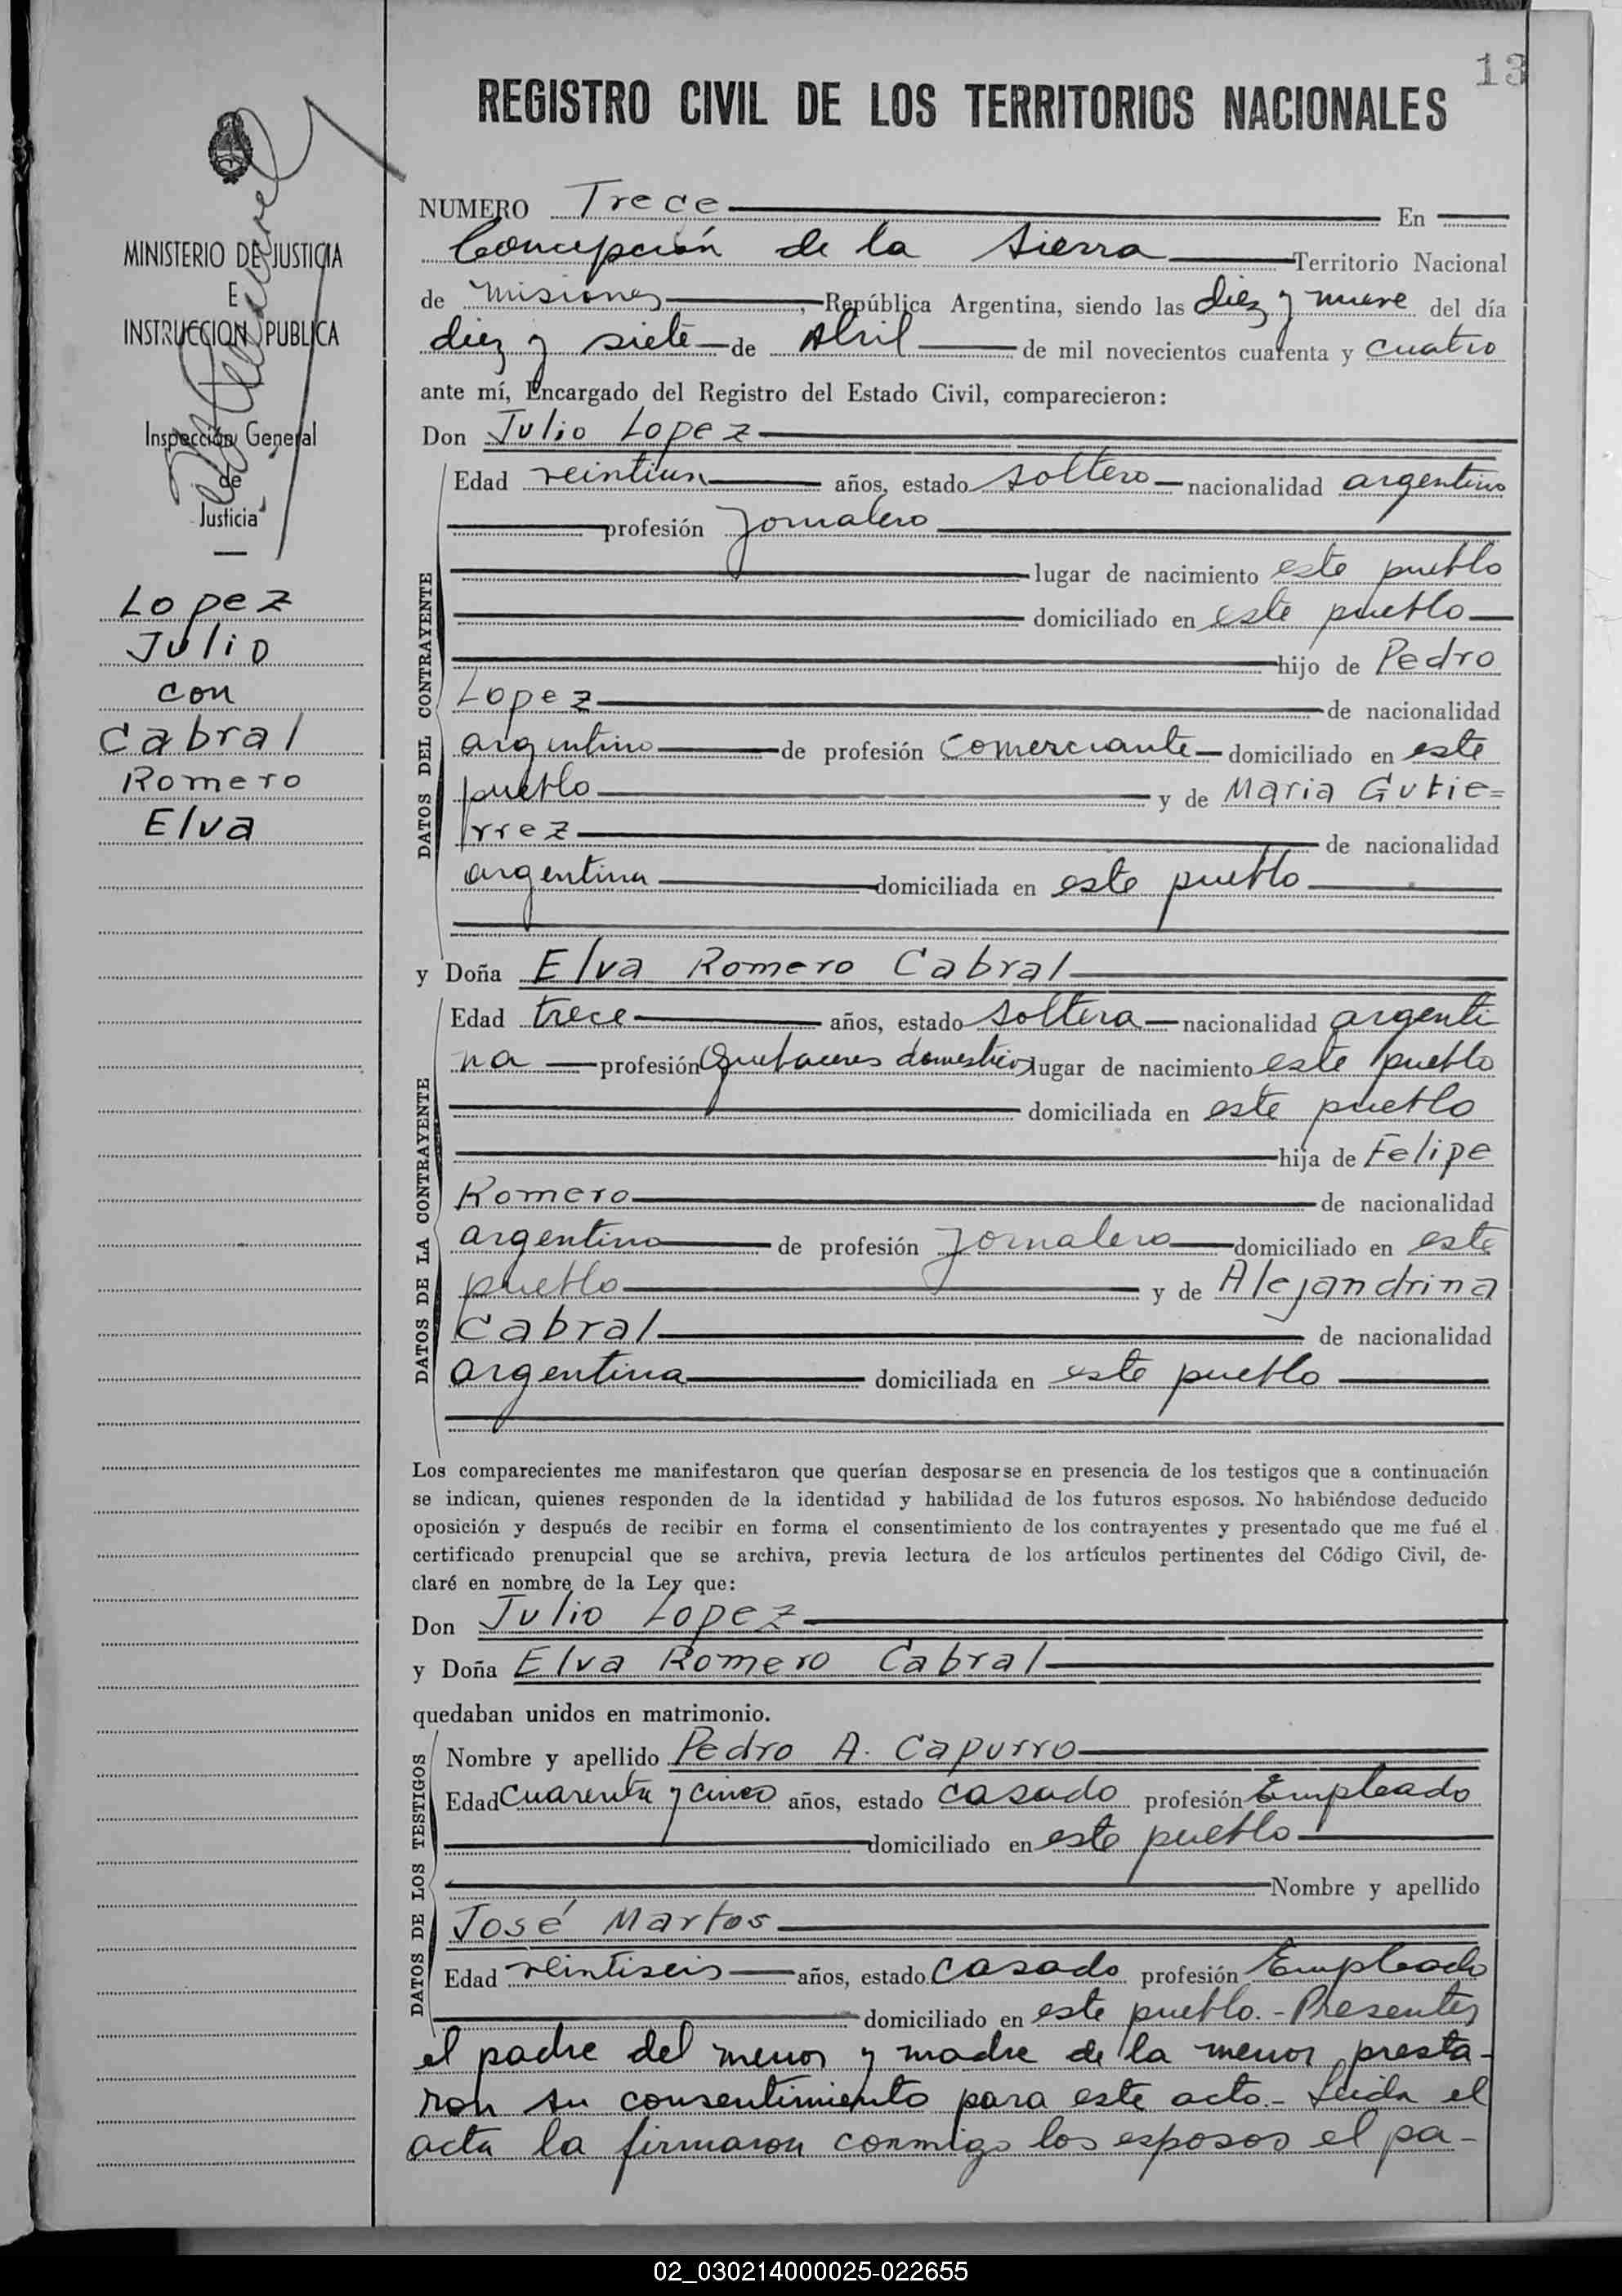 13
REGISTRO CIVIL DE LOS TERRITORIOS NACIONALES
MINISTERIO DE JUSTICIA
E
INSTRUCCION PUBLICA
Inspección General
de
Justicia
Lopez
Julio
con
Cabral
Romero
Elva
NUMERO Trece En
Concepción de la Sierra Territorio Nacional
de Misiones, República Argentina, siendo las diez y nueve del día
diez y siete de Abril de mil novecientos cuarenta y cuatro
ante mí, Encargado del Registro del Estado Civil, comparecieron:
Don Julio Lopez
DATOS DEL CONTRAYENTE
Edad veintiun años, estado soltero nacionalidad argentino
profesión Jornalero
lugar de nacimiento este pueblo
domiciliado en este pueblo
hijo de Pedro
Lopez de nacionalidad
argentino de profesión Comerciante domiciliado en este
pueblo y de Maria Gutie=
rrez de nacionalidad
argentina domiciliada en este pueblo
y Doña Elva Romero Cabral
DATOS DE LA CONTRAYENTE
Edad trece años, estado soltera nacionalidad argenti
na profesión Quehaceres domesticos lugar de nacimiento este pueblo
domiciliada en este pueblo
hija de Felipe
Romero de nacionalidad
argentino de profesión Jornalero domiciliado en este
pueblo y de Alejandrina
Cabral de nacionalidad
argentina domiciliada en este pueblo
Los comparecientes me manifestaron que querían desposarse en presencia de los testigos que a continuación
se indican, quienes responden de la identidad y habilidad de los futuros esposos. No habiéndose deducido
oposición y después de recibir en forma el consentimiento de los contrayentes y presentado que me fué el
certificado prenupcial que se archiva, previa lectura de los artículos pertinentes del Código Civil, de-
claré en nombre de la Ley que:
Don Julio Lopez
y Doña Elva Romero Cabral
quedaban unidos en matrimonio.
DATOS DE LOS TESTIGOS
Nombre y apellido Pedro A. Capurro
Edad Cuarenta y cinco años, estado casado profesión Empleado
domiciliado en este pueblo
Nombre y apellido
José Martos
Edad veintiseis años, estado casado profesión Empleado
domiciliado en este pueblo.- Presentes
el padre del menor y madre de la menor presta-
ron su consentimiento para este acto.- Leida el
acta la firmaron conmigo los esposos el pa-
02_030214000025-022655